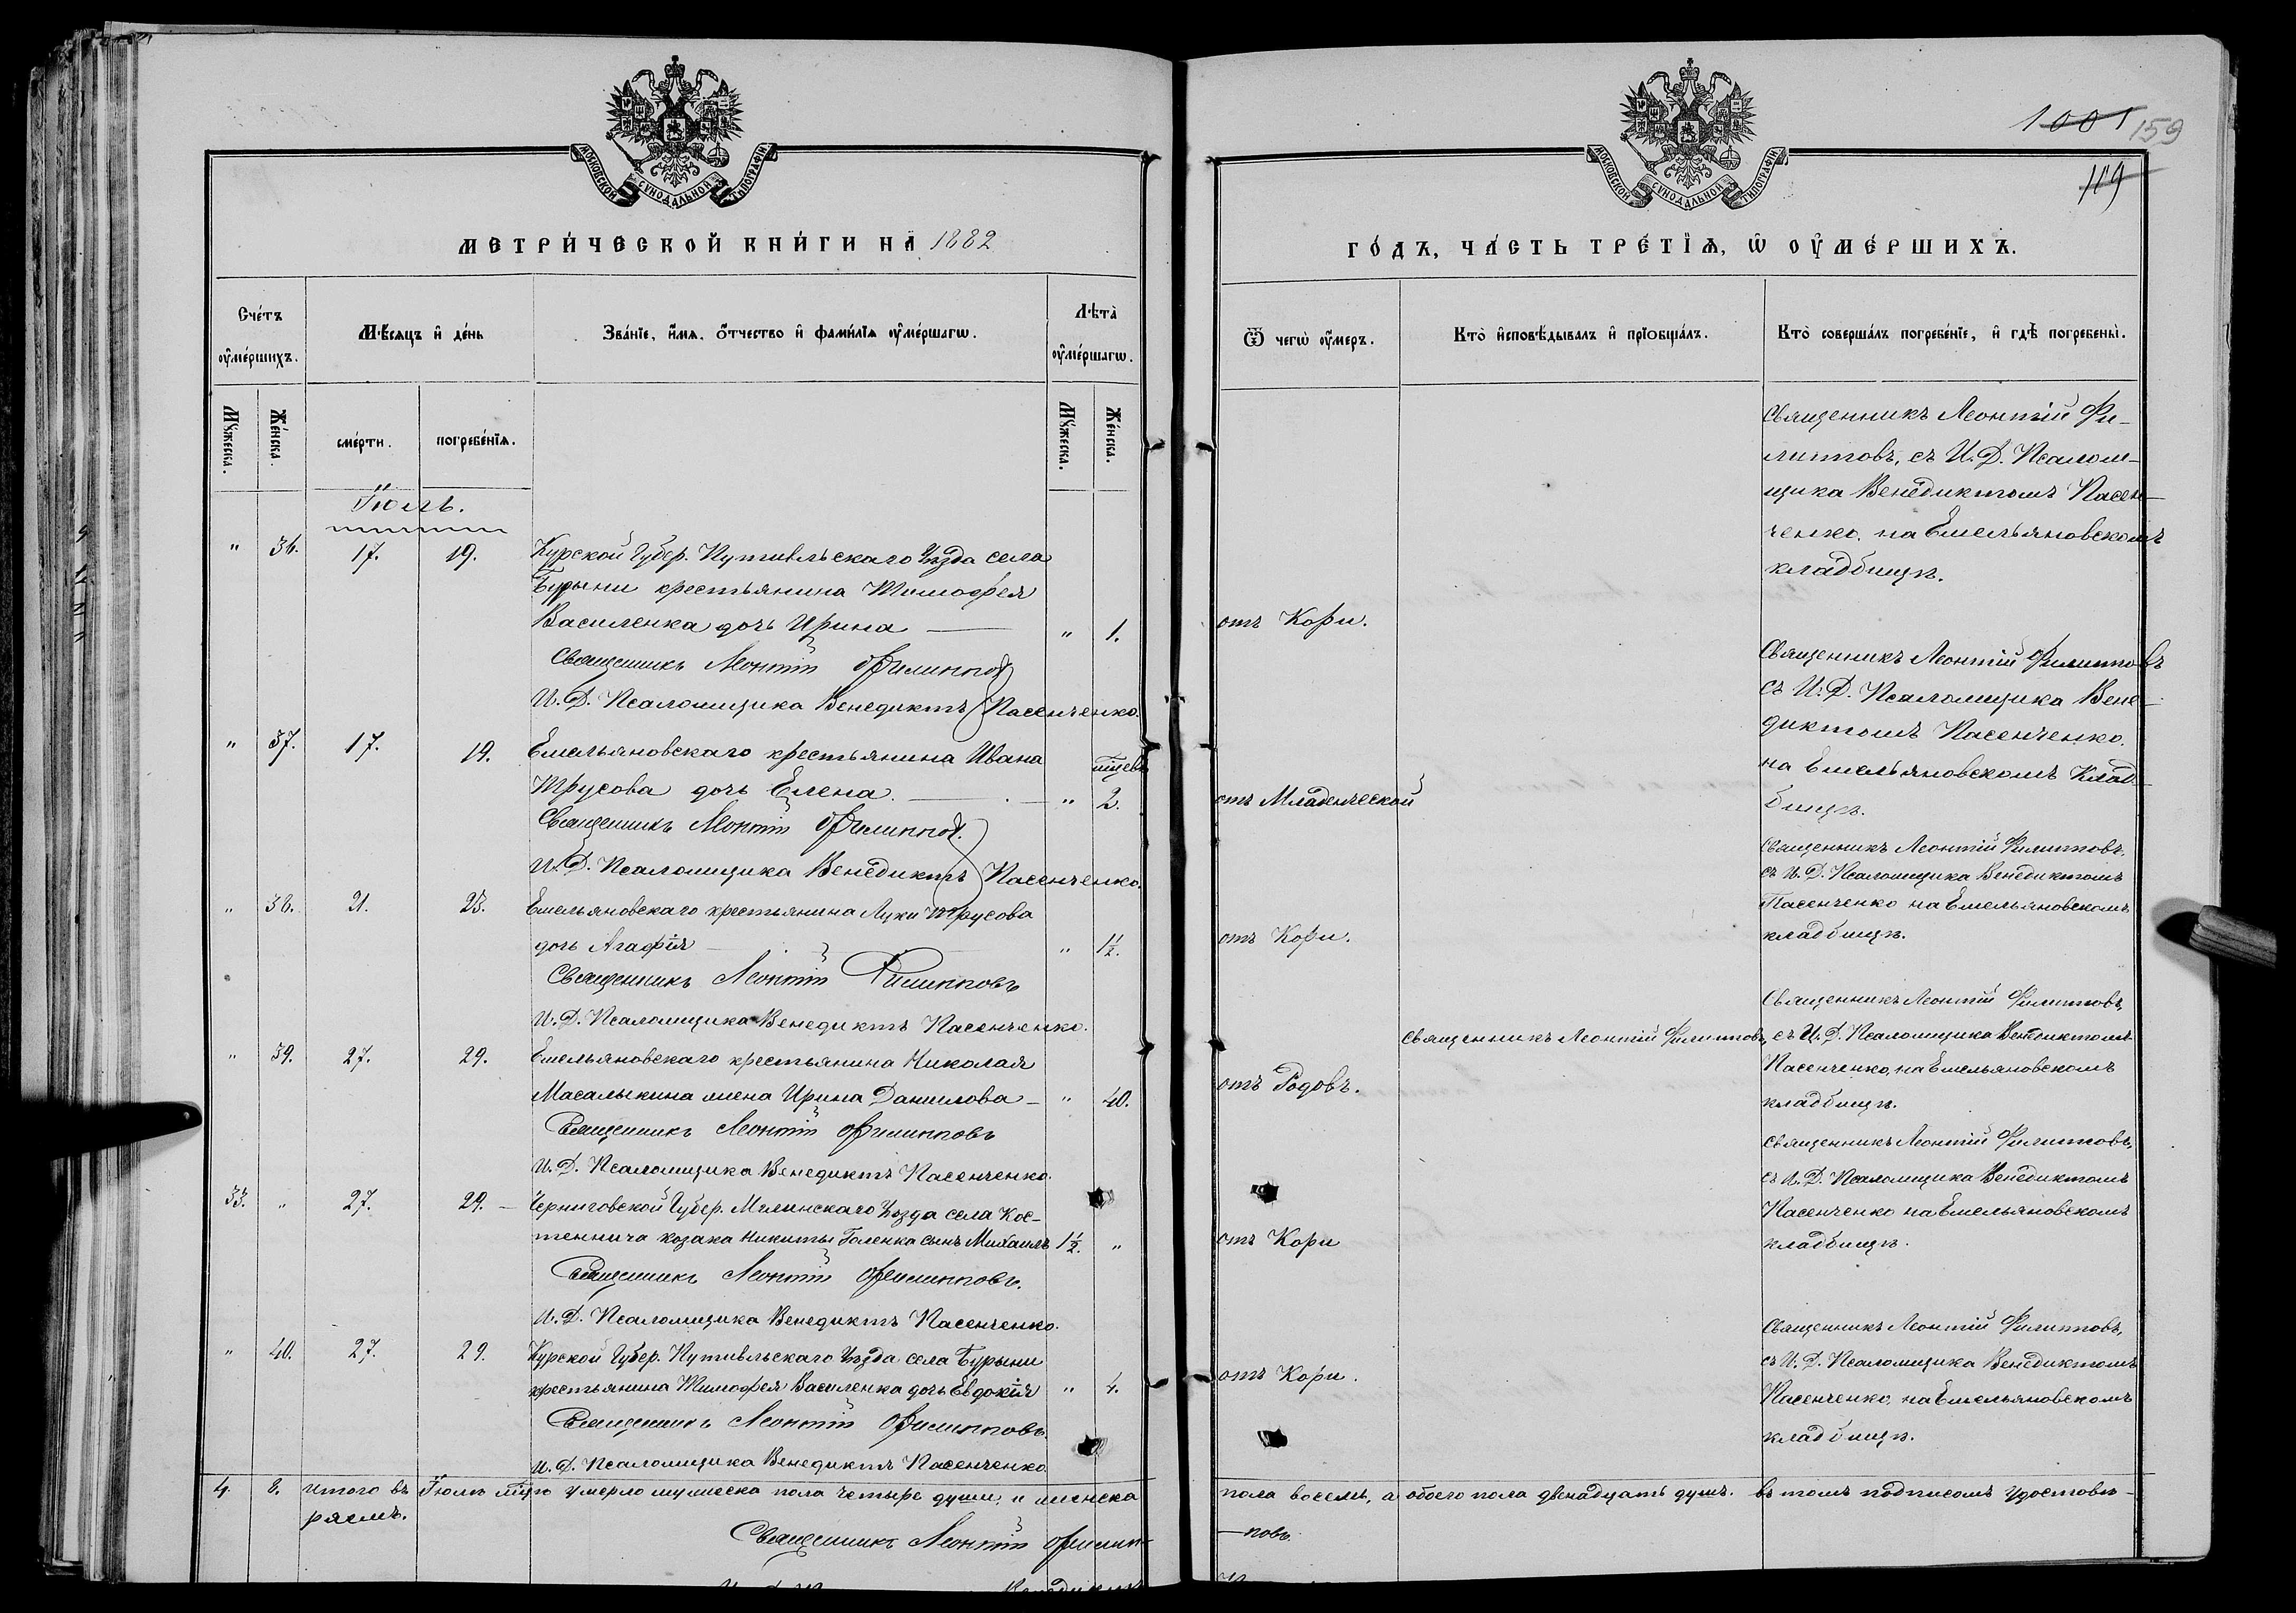 МОСКОВСКОЙ СУНОДАЛЬНОЙ ТИПОГРАФІИ
МЕТРИ́ЧЕСКОЙ КНИ́ГИ НА 1882
Счётъ оумершихъ.
Мѣсяцъ и день
Званіе, имя, отчество и фамилія оумершагω.
Лѣта оумершагω.
Мужеска.
Женска.
смерти.
погребенія.
Мужеска.
Женска.
Іюль.
" 36. 17. 19. Курской Губер. Путивльскаго Уѣзда села
Бурыни крестьянина Тимофея
Василенка дочь Ирина — " 1.
Священникъ Леонтій Филиппов
И. Д. Псаломщика Венедиктъ Пасенченко.
" 37. 17. 19. Емельяновскаго крестьянина Ивана
Трусова дочь Елена. — " 2.
Священникъ Леонтій Филиппов.
И. Д. Псаломщика Венедиктъ Пасенченко.
" 38. 21. 23. Емельяновскаго крестьянина Луки Трусова
дочь Агафія — " 1½.
Священникъ Леонтій Филипповъ
И. Д. Псаломщика Венедиктъ Пасенченко.
" 39. 27. 29. Емельяновскаго крестьянина Николая
Масалыкина жена Ирина Данилова — " 40.
Священникъ Леонтій Филипповъ
И. Д. Псаломщика Венедиктъ Пасенченко.
33. " 27. 29. — Черниговской Губер. Мглинскаго Уѣзда села Кос-
теничa козака Никиты Голенка сынъ Михаилъ 1½. "
Священникъ Леонтій Филипповъ.
И. Д. Псаломщика Венедиктъ Пасенченко.
" 40. 27. 29. Курской Губер. Путивльскаго Уѣзда села Бурыни
крестьянина Тимофея Василенка дочь Евдокія " 4.
Священникъ Леонтій Филипповъ.
И. Д. Псаломщика Венедиктъ Пасенченко.
4. 8. Итого въ Іюлѣ м̃цѣ умерло мужеска пола четыре души, и женска
ряемъ.
Священникъ Леонтій Филип-
1001 159
119
МОСКОВСКОЙ СУНОДАЛЬНОЙ ТИПОГРАФІИ
ГО́ДЪ, ЧА́СТЬ ТРЕ́ТІЯ, Ѡ ОУМЕ́РШИХЪ.
Ѿ чегω оумеръ.
Кто исповѣдывалъ и пріобщалъ.
Кто совершалъ погребеніе, и гдѣ погребены.
Священникъ Леонтій Фи-
липповъ, съ И. Д. Псалом-
щика Венедиктомъ Пасен-
ченко, на Емельяновскомъ
кладбищѣ.
отъ Кори.
Священникъ Леонтій Филипповъ
съ И. Д. Псаломщика Вене-
диктомъ Пасенченко.
на Емельяновскомъ Клад-
бищѣ.
отъ Младенческой
Священникъ Леонтій Филипповъ.
съ И. Д. Псаломщика Венедиктомъ
Пасенченко на Емельяновскомъ
кладбищѣ.
отъ Кори.
Священникъ Леонтій Филипповъ,
Священникъ Леонтій Филипповъ, съ И. Д. Псаломщика Венедиктомъ
Пасенченко, на Емельяновскомъ
отъ Родовъ.
кладбищѣ.
Священникъ Леонтій Филипповъ,
съ И. Д. Псаломщика Венедиктомъ
Пасенченко на Емельяновскомъ
отъ Кори
кладбищѣ.
Священникъ Леонтій Филипповъ,
съ И. Д. Псаломщика Венедиктомъ
отъ Кори.
Пасенченко, на Емельяновскомъ
кладбищѣ.
пола восемь, а обоего пола двенадцать душъ. въ томъ подписомъ удостовѣ-
—повъ.